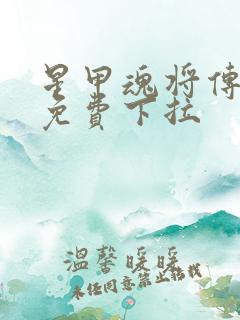 星甲魂将傳
免費下拉
溫馨暖暖
未经同意禁止转载